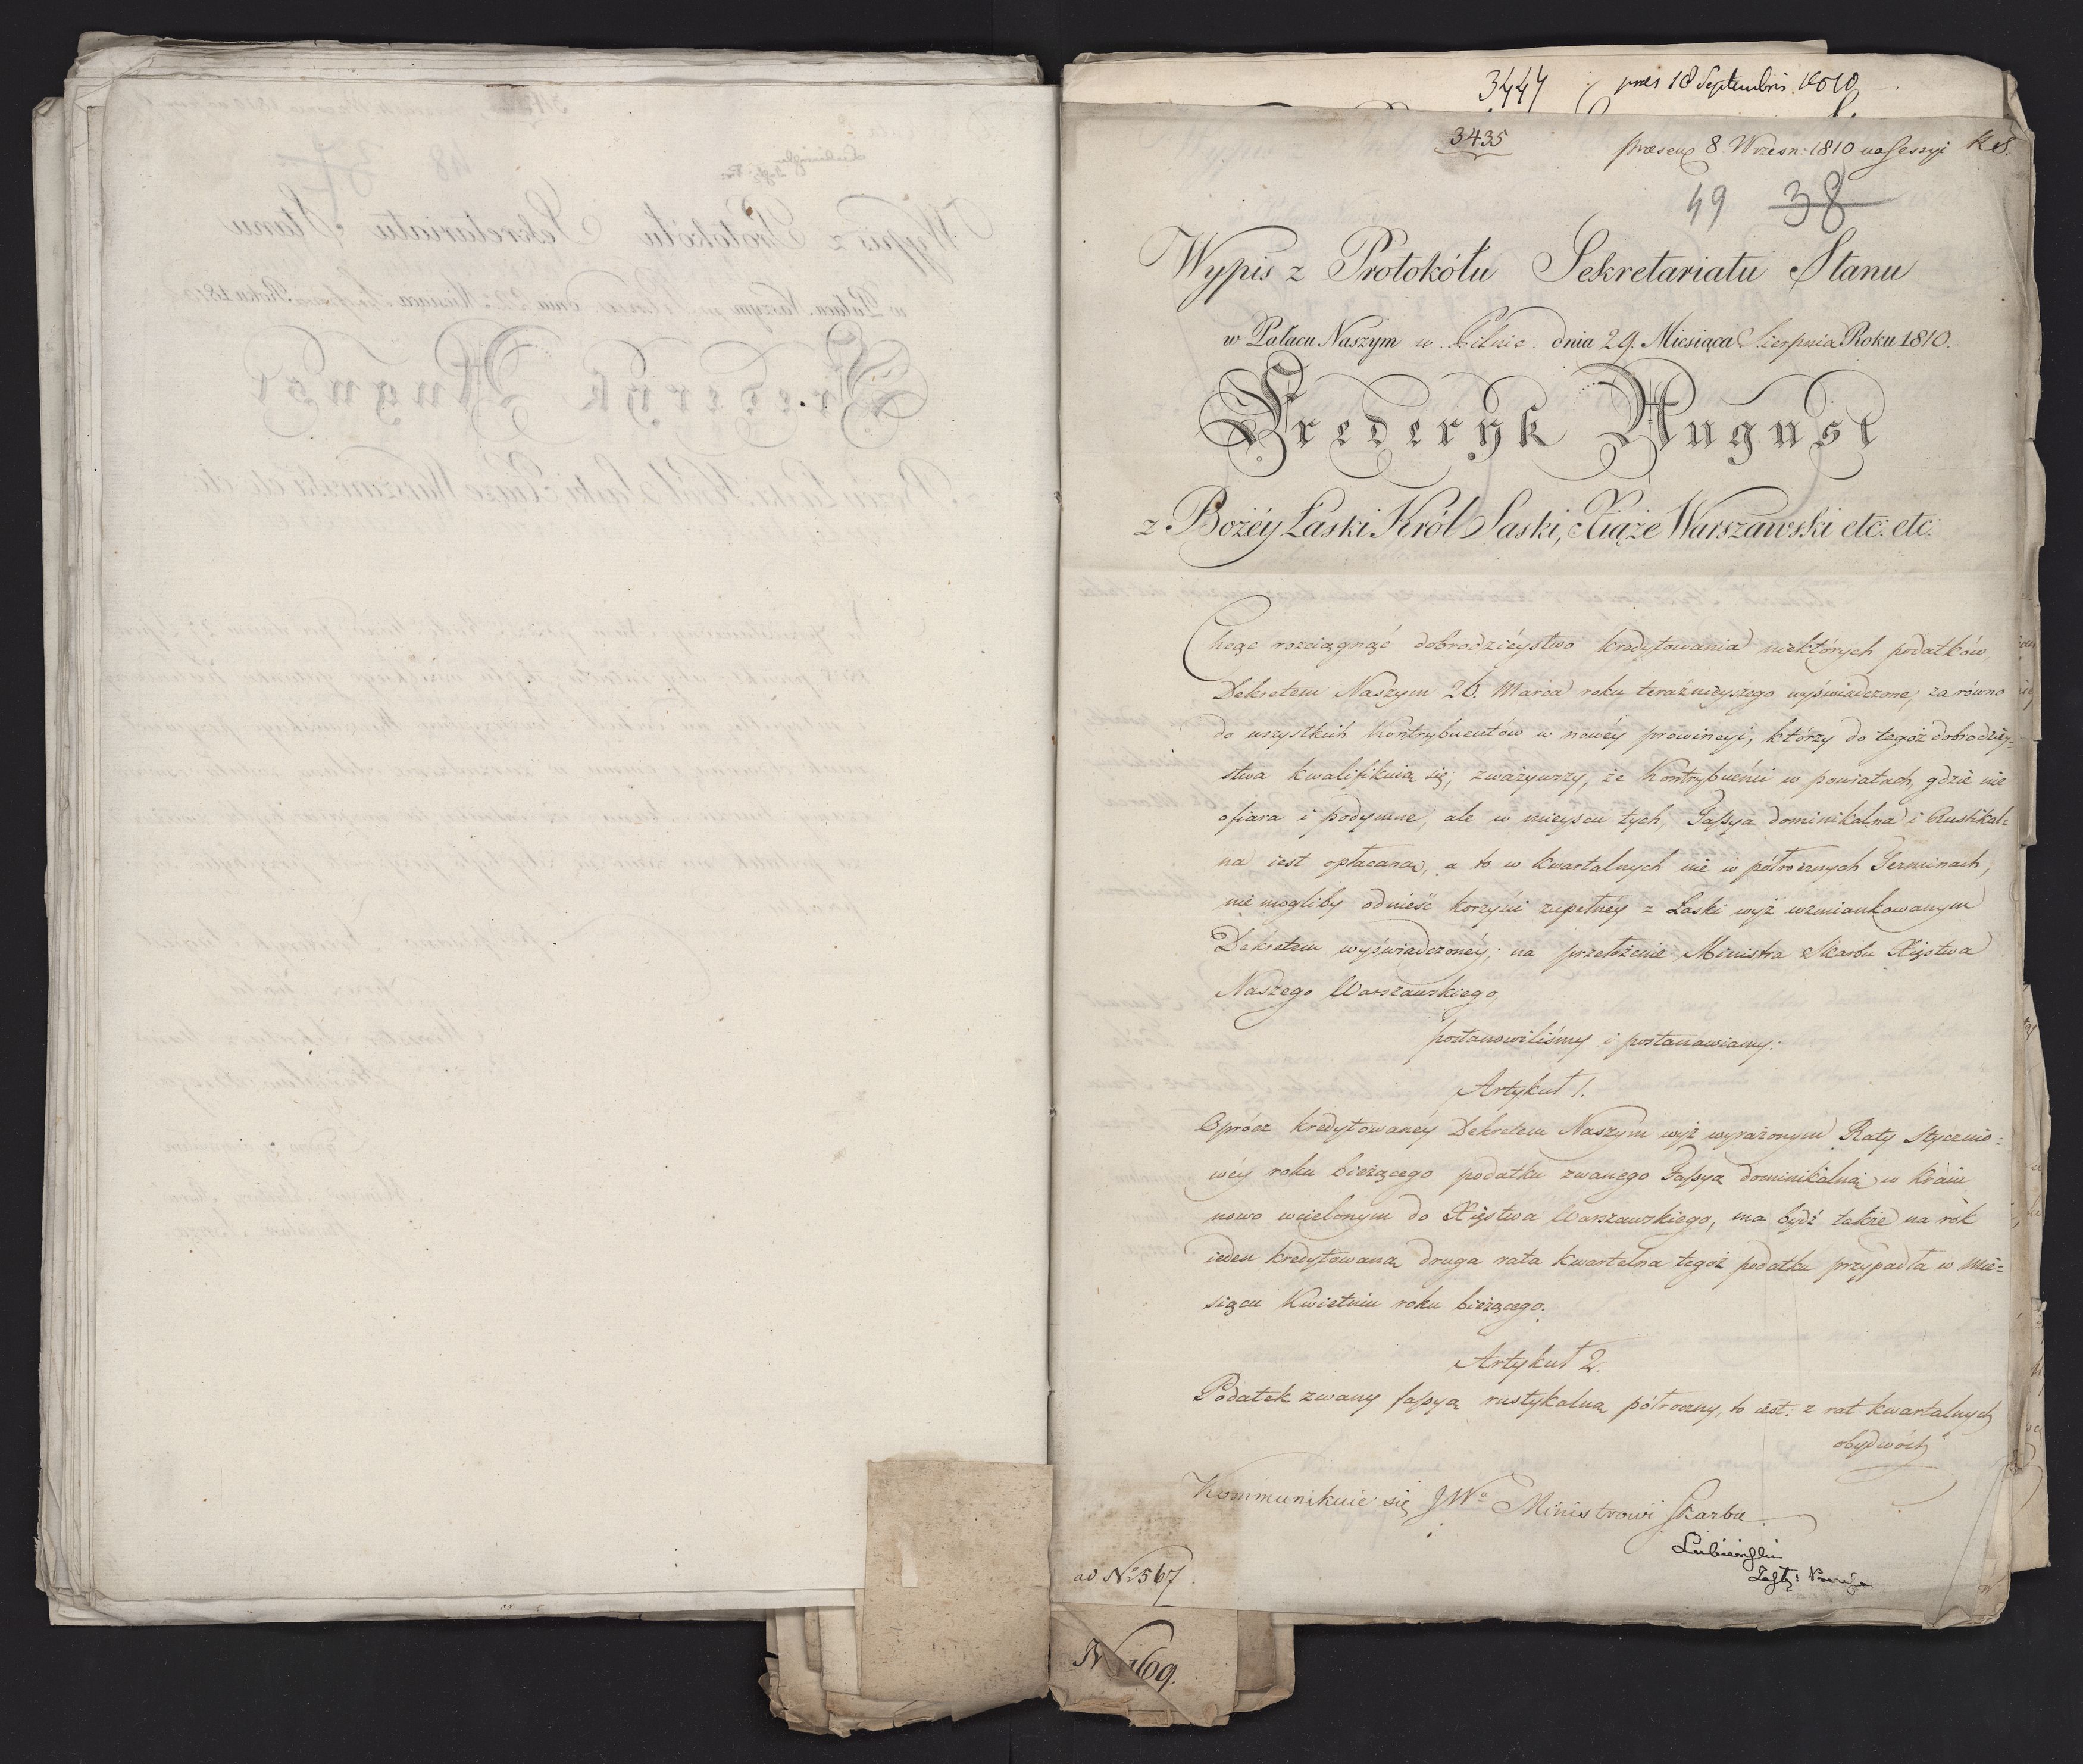 3447 pres 18 Septembris 1810
3435 præsent 8. Wrzesn: 1810 na Sessyi R.S.
49 38
Wypis z Protokółu Sekretariatu Stanu
w Pałacu Naszym w Pilnic dnia 29. Miesiąca Sierpnia Roku 1810.
Frederyk August
z Bożéy Łaski Król Saski, Xiąże Warszawski etc: etc:
Chcąc rozciągnąć dobrodzieystwo kredytowania niektórych podatków,
Dekretem Naszym 26. Marca roku teraźnieyszego wyświadczone, za równo
do wszystkich Kontrybuentów w nowéy prowincyi, którzy do tegóż dobrodziey-
stwa kwalifikuią się; zważywszy, że Kontrybuenci w powiatach, gdzie nie
ofiara i podymne, ale w mieyscu tych, Fassya dominikalna i Rustikal=
na iest opłacaną, a to w kwartalnych nie w półrocznych Terminach,
nie mogliby odnieść korzyści zupełnéy z Łaski wyż wzmiankowanym
Dekretem wyświadczonéy; na przełożenie Ministra Skarbu Xięstwa
Naszego Warszawskiego,
postanowiliśmy i postanawiamy:
Artykuł 1.
Oprócz kredytowanéy Dekretem Naszym wyż wyrażonym Raty Stycznio=
wéy roku bieżącego podatku zwanego Fassyą dominikalną w kraiu
nowo wcielonym do Xięstwa Warszawskiego, ma bydź także na rok
ieden kredytowaną druga rata kwartalna tegóż podatku przypadła w mie=
siącu Kwietniu roku bieżącego.
Artykuł 2.
Podatek zwany fassyą rustykalną półroczny, to iest: z rat kwartalnych
obydwóch
Kommunikuie się JWu Ministrowi Skarbu
Lubieński
ad No 567
N 169.